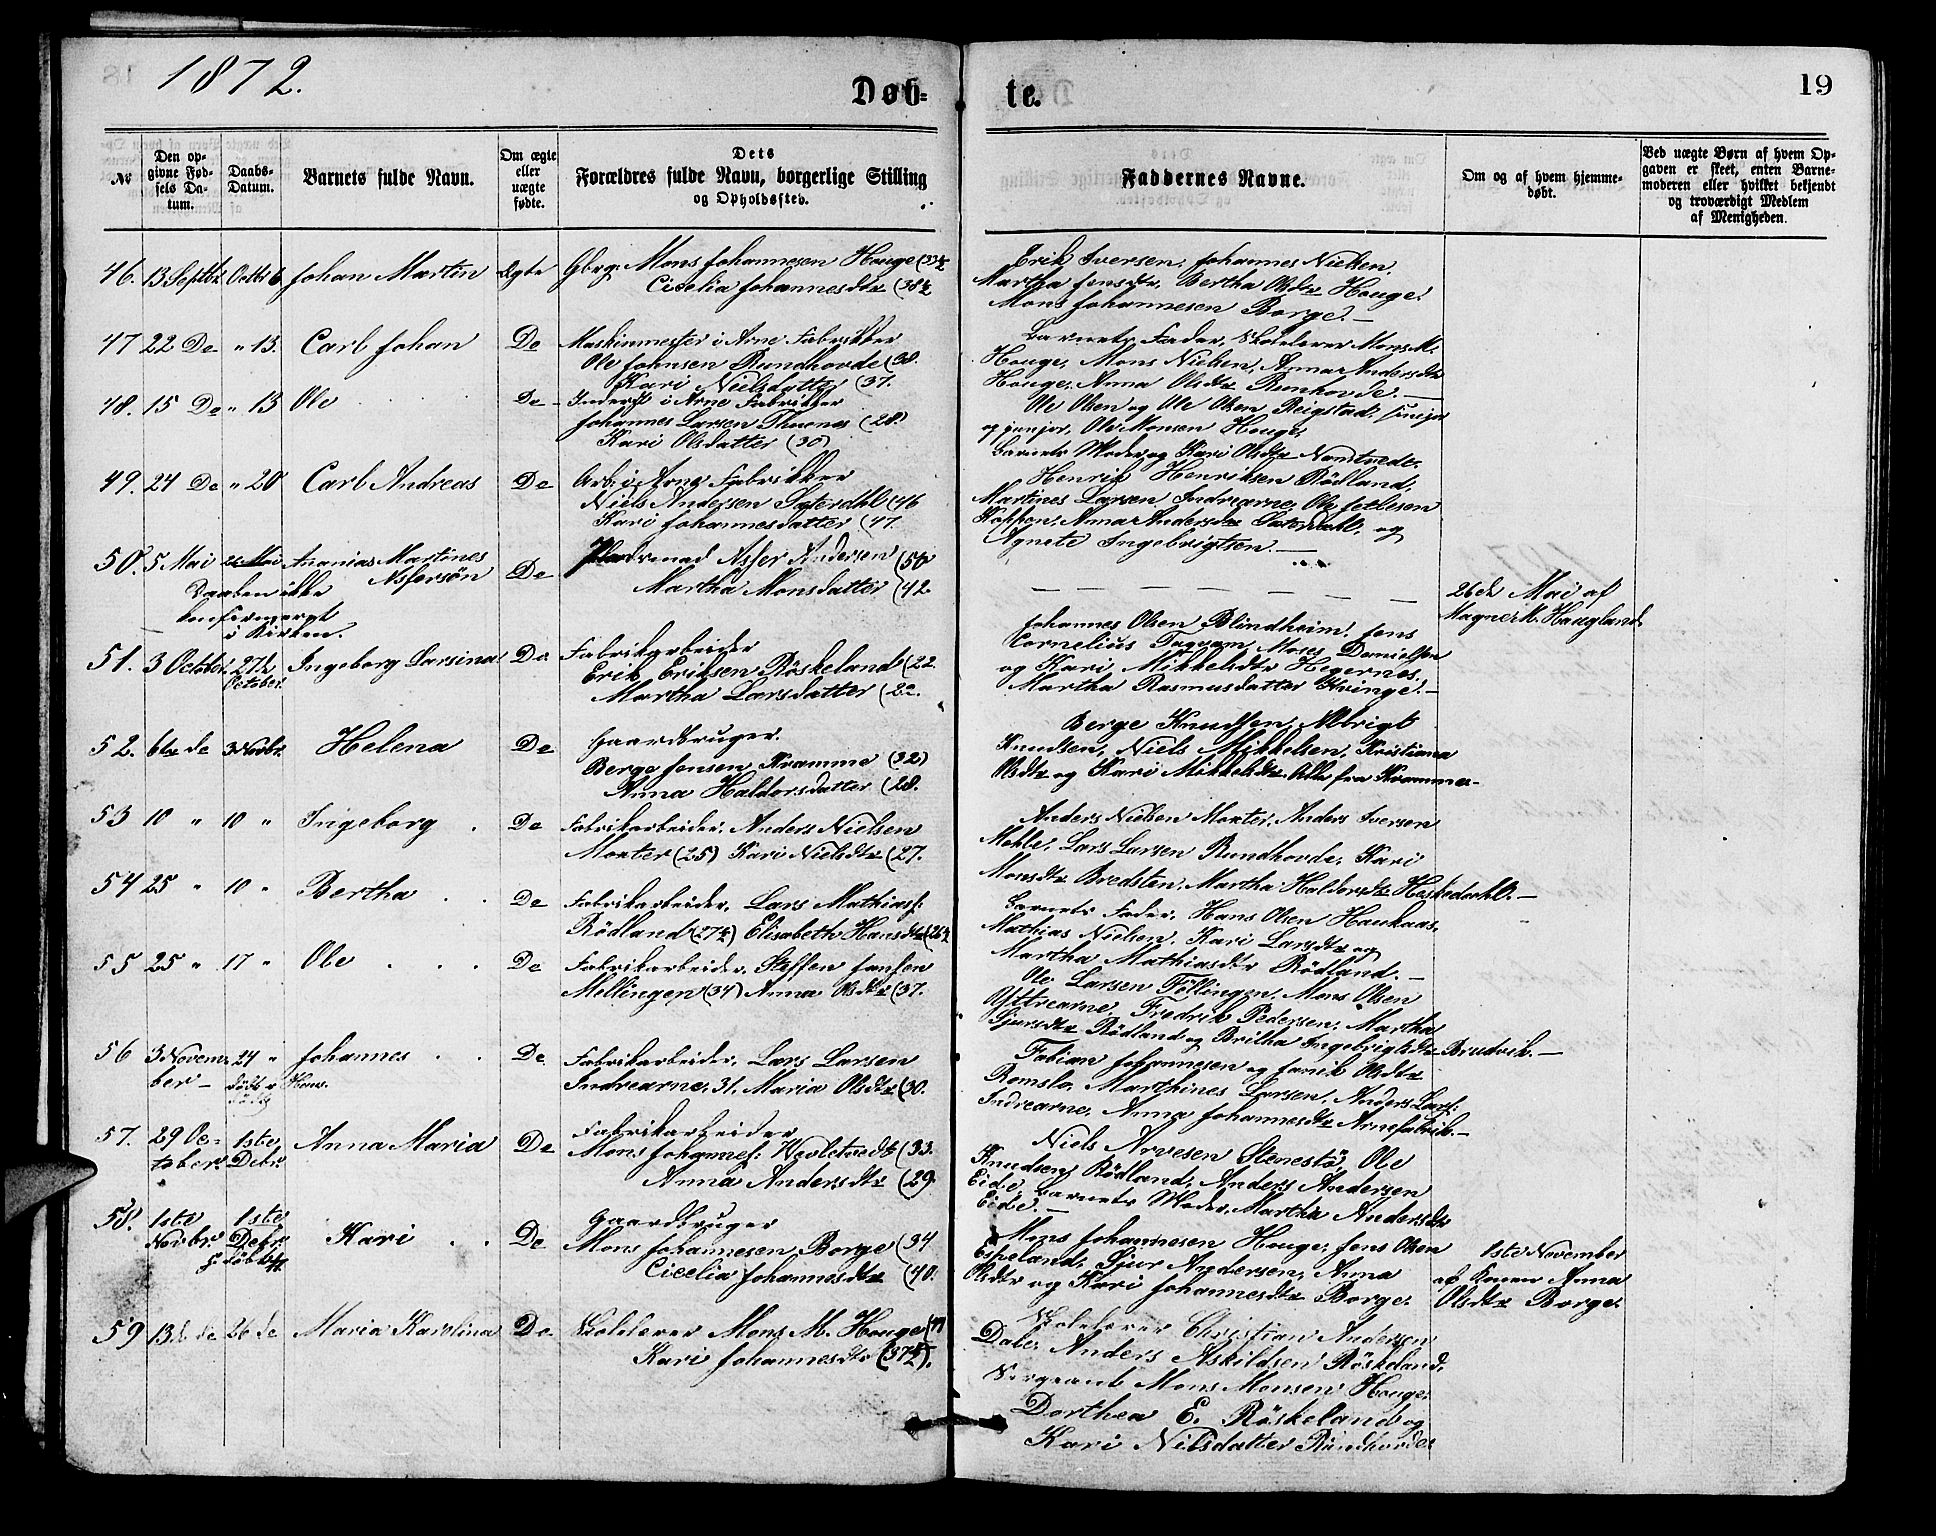 1872.
Døb=
te.
19
№
Den op-
givne Fød-
sels Da-
tum.
Daabs-
Datum.
Barnets fulde Navn.
Om ægte
eller
uægte
fødte.
Dets
Forældres fulde Navn, borgerlige Stilling
og Opholdssted.
Faddernes Navne.
Om og af hvem hjemme-
døbt.
Ved uægte Børn af hvem Op-
gaven er skeet, enten Barne-
moderen eller hvilket bekjendt
og troværdigt Medlem
af Menigheden.
46. 13 Septbr Octbr 6 Johan Martin Ægte Gbrg. Mons Johannesen Houge (33½
Cicelia Johannesdtr (38½
Erik Iversen, Johannes Nielsen,
Martha Jensdtr, Bertha Olsdtr Houge,
Mons Johannesen Borge.—
47 22 De " 13. Carl Johan De Maskinmester i Arne Fabrikker
Ole Johnsen Rundhovde (38.
Kari Nielsdatter (37.
Barnets Fader, Skolelærer Mons M.
Houge, Mons Nielsen, Anna Andersdtr
Houge, Anna Olsdtr Runhovde.—
48. 15 De " 13 Ole De Inderst i Arne Fabrikker
Johannes Larsen Thuenes (28)
Kari Olsdatter (30)
Ole Olsen og Ole Olsen Reigstad, senjor
og junjor, Ole Monsen Houge,
Barnets Moder og Kari Olsdtr
49. 24 De " 20 Carl Andreas De Arb. i Arne Fabrikker
Niels Andersen Seterdhl (46
Kari Johannesdatter (47.
Henrik Henriksen Rödland,
Martines Larsen Indrearne, Ole Jetlesen
Koppen, Anna Andersdtr Seterdahl, og
Agnete Ingebrigtsen.—
50. 5 Mai 26 Mai Ananias Martines
Asfersön De Asfer Andersen (50
Martha Monsdatter (42
Daaben ikke
konfirmeret
i Kirken.
26de Mai af
Magne M. Haugland
51. 3 October 27de
October. Ingeborg Larsina De Fabrikarbeider
Erik Eriksen Röskeland (22
Martha Larsdatter (22.
Johannes Olsen Blindheim, Jens
Cornelius Moses Danielsen
og Kari Mikkelsdtr Hegernes,
Martha Rasmusdatter Hvinge.—
52. 6te de 3 Novbr. Helena De Gaardbruger.
Berge Jensen Kvamme (32)
Anna Haldorsdatter (28.
Berge Knudsen, Albrigt
Knudsen, Niels Mikkelsen, Kristiana
Olsdtr og Kari Mikkelsdtr Alle fra Kvamme—
53 10 " 10 " Ingeborg . De Fabrikarbeider, Anders Nielsen
Monter (25) Kari Nielsdtr (27.
Anders Nielsen Monter, Anders Iversen
Mehle, Lars Larsen Rundhovde, Kari
Monsdtr Bredsten, Martha Haldorsdtr Heskedahl.—
54 25 " 10 " Bertha . . De Fabrikarbeider, Lars Mathiass:
Rödland (27½) Elisabeth Hansdtr (26½
Barnets Fader, Hans Olsen Haukaas,
Mathias Nielsen, Kari Larsdtr og
Martha Mathiasdtr Rödland.—
55 25 " 17 " Ole . . . De Fabrikarbeider, Steffen Jansen
Mellingen (34) Anna Olsdtr (37.
Ole Larsen Föllingen, Mons Olsen
Yttrearne, Fredrik Pedersen, Martha
Sjursdtr Rödland og Britha Ingebrigtsdtr Brudvik.—
56 3 Novem-
ber— 24 " Johannes . . De Fabrikarbeider, Lars Larsen
Indrearne, 31, Maria Olsdtr (30.
Fabian Johannesen og Janik Olsdtr
Romslo, Marthines Larsen, Anders Lars:
Indrearne, Anna Johannesdtr Arnefabrik.—
57. 29 Oc-
tober 1ste
Debr. Anna Maria De Fabrikarbeider
Mons Johanness: (33.
Anna Andersdtr (29.
Niels Arvesen Stenestö, Ole
Knudsen Rödland, Anders Andersen
Eide, Barnets Moder, Martha Andersdtr
Eide.—
58. 1ste
Novbr. 1ste
Debr. Kari . . De Gaardbruger
Mons Johannesen Borge (34
Cicelia Johannesdtr (40.
Mons Johannesen Houge, Jens Olsen
Espeland, Sjur Andersen, Anna
Olsdtr og Kari Johannesdtr Borge.
1ste November
af Konen Anna
Olsdtr Borge.
59 13de de 26 de Maria Karolina De. Skolelærer Mons M. Houge
Kari Johannesdtr (37½).
Skolelærer Christian Andersen
Dale, Anders Askildsen Röskeland,
Sergeant Mons Monsen Houge,
Dorthea E. Röskeland og
Kari Nilsdatter Rundhovde